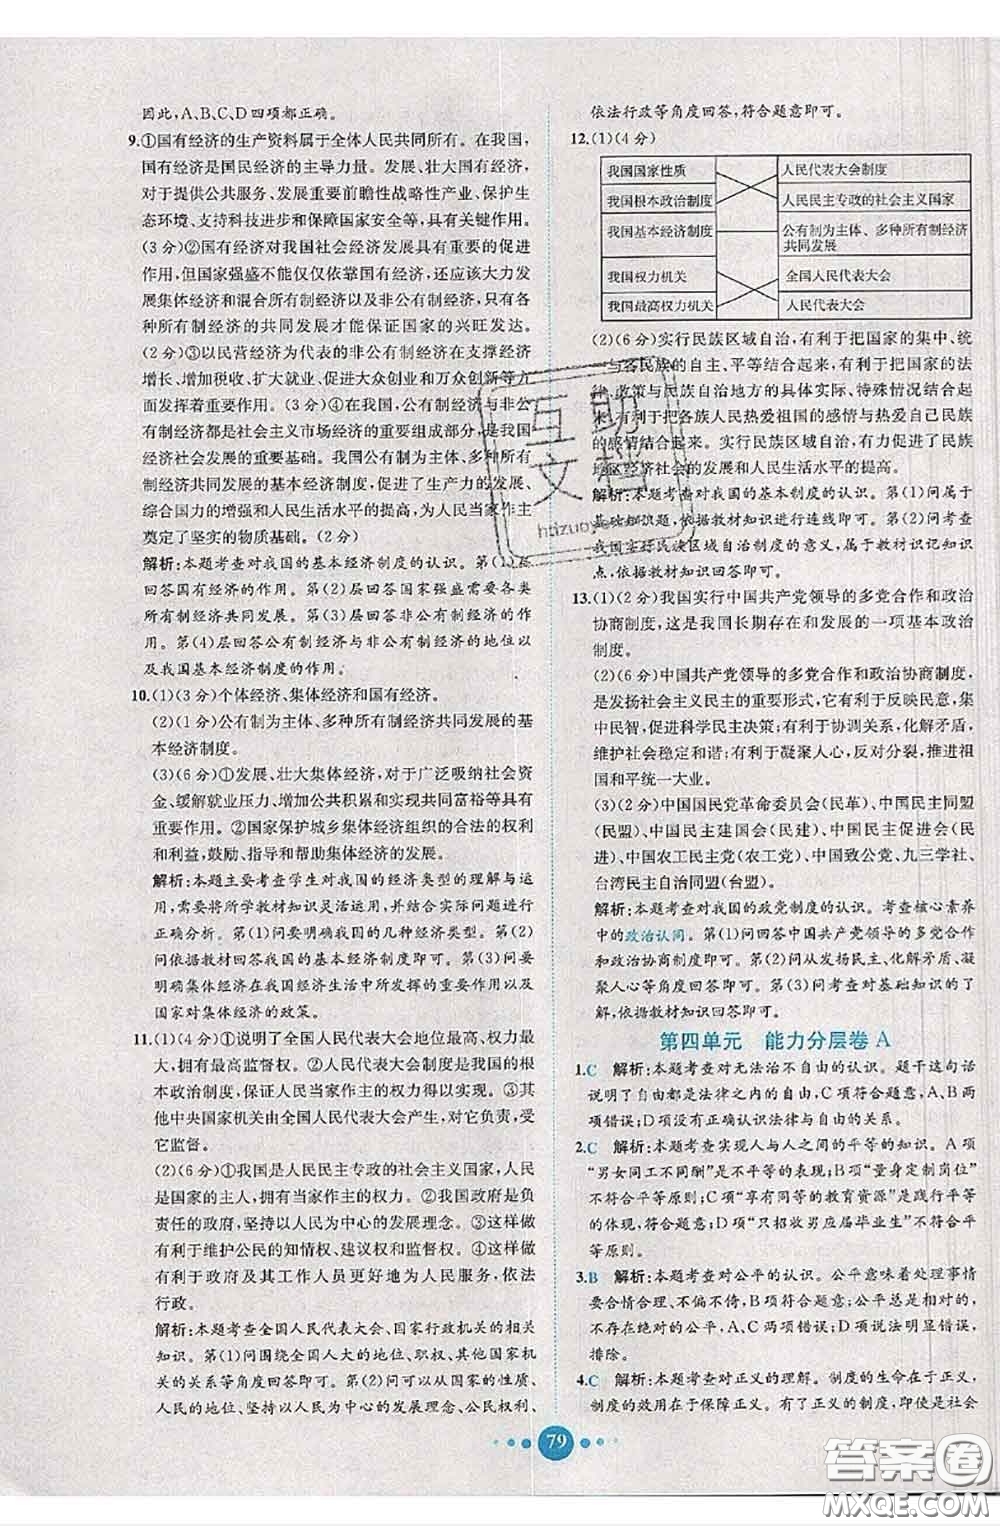 因此,A、B、C、D四项都正确。
9.①国有经济的生产资料属于全体人民共同所有。在我国,
国有经济是国民经济的主导力量。发展、壮大国有经济,
对于提供公共服务、发展重要前瞻性战略性产业、保护生
态环境、支持科技进步和保障国家安全等,具有关键作用。
(3分)②国有经济对我国社会经济发展具有重要的促进
作用,但国家强盛不能仅仅依靠国有经济,还应该大力发
展集体经济和混合所有制经济以及非公有制经济,只有各
种所有制经济的共同发展才能保证国家的兴旺发达。
(2分)③以民营经济为代表的非公有制经济在支撑经济
增长、增加税收、扩大就业、促进大众创业和万众创新等方
面发挥着重要作用。(3分)④在我国,公有制经济与非公
有制经济都是社会主义市场经济的重要组成部分,是我国
经济社会发展的重要基础。我国公有制为主体、多种所
有制经济共同发展的基本经济制度,促进了生产力的发展、
综合国力的增强和人民生活水平的提高,为人民当家作主
奠定了坚实的物质基础。(2分)
解析:本题考查对我国的基本经济制度的认识。第(1)层
回答国有经济的作用。第(2)层回答国家强盛需要各类
所有制经济共同发展。第(3)层回答非公有制经济的作
用。第(4)层回答公有制经济与非公有制经济的地位以
及我国基本经济制度的作用。
10.(1)(3分)个体经济、集体经济和国有经济。
(2)(1分)公有制为主体、多种所有制经济共同发展的基
本经济制度。
(3)(6分)①发展、壮大集体经济,对于广泛吸纳社会资
金、缓解就业压力、增加公共积累和实现共同富裕等具有
重要作用。②国家保护城乡集体经济组织的合法的权利
和利益,鼓励、指导和帮助集体经济的发展。
解析:本题主要考查学生对我国的经济类型的理解与运
用,需要将所学教材知识灵活运用,并结合实际情况进行
正确分析。第(1)问要明确我国的几种经济类型。第(2)
问依据教材回答我国的基本经济制度即可。第(3)问要
明确集体经济在我国经济生活中所发挥的重要作用以及
国家对集体经济的政策。
11.(1)(4分)①说明了全国人民代表大会地位最高、权力最
大、拥有最高监督权。②人民代表大会制度是我国的根
本政治制度,保证人民当家作主的权利得以实现。③其
他中央国家机关由全国人民代表大会产生,对它负责,受
它监督。
(2)(6分)①我国是人民民主专政的社会主义国家,人民
是国家的主人,拥有当家作主的权力。②我国政府是负
责任的政府,坚持以人民为中心的发展理念。③这样做
有利于维护公民的知情权、建议权和监督权。④这样做
有利于政府及其工作人员更好地为人民服务,依法
行政。
解析:本题考查全国人民代表大会、国家行政机关的相关
知识。第(1)问围绕全国人大的地位、职权、其他国家机
关的关系等角度回答即可。第(2)问可以从国家的性质、
人民的地位、坚持以人民为中心的发展理念、公民权利、
依法行政等角度回答,符合题意即可。
12.(1)(4分)
我国国家性质 人民代表大会制度
我国根本政治制度 人民民主专政的社会主义国家
我国基本经济制度 公有制为主体、多种所有制经济
共同发展
我国权力机关 全国人民代表大会
我国最高权力机关 人民代表大会
(2)(6分)实行民族区域自治,有利于把国家的集中、统
一与各民族的自主、平等结合起来,有利于把国家的法
律、政策与民族自治地方的具体实际、特殊情况结合起
来,有利于把各族人民热爱祖国的感情与热爱自己民族
的感情结合起来。实行民族区域自治,有力促进了民族
地区经济社会的发展和人民生活水平的提高。
解析:本题考查对我国的基本制度的认识。第(1)问属于
基础知识题,依据教材知识进行连线即可。第(2)问考查
我国实行民族区域自治制度的意义,属于教材识记知识
点,依据教材知识回答即可。
13.(1)(2分)我国实行中国共产党领导的多党合作和政治
协商制度,这是我国长期存在和发展的一项基本政治
制度。
(2)(6分)中国共产党领导的多党合作和政治协商制度,
是发扬社会主义民主的重要形式,它有利于反映民意,集
中民智,促进科学民主决策;有利于协调关系,化解矛盾,
维护社会稳定和谐;有利于凝聚人心,反对分裂,推进祖
国和平统一大业。
(3)(2分)中国国民党革命委员会(民革)、中国民主同盟
(民盟)、中国民主建国会(民建)、中国民主促进会(民
进)、中国农工民主党(农工党)、中国致公党、九三学社、
台湾民主自治同盟(台盟)。
解析:本题考查对我国的政党制度的认识。考查核心素养
中的政治认同。第(1)问回答中国共产党领导的多党合作
和政治协商制度即可。第(2)问从发扬民主、化解矛盾、凝
聚人心等角度回答即可。第(3)问考查对基础知识的了
解,依据教材知识回答即可。
第四单元 能力分层卷A
1.C 解析:本题考查对无法治不自由的认识。题干这句话
说明了自由都是法律之内的自由,C项符合题意;A、B两
项错误;D项没有正确认识法律与自由的关系。
2.C 解析:本题考查实现人与人之间的平等的知识。A项
“男女同工不同酬”是不平等的表现;B项“量身定制岗位”
不符合平等原则;C项“享有同等的教育资源”是践行平等
的体现,符合题意;D项“只招收男应届毕业生”不符合平
等原则。
3.B 解析:本题考查对公平的认识。公平意味着处理事情
要合情合理、不偏不倚,B项符合题意;公平总是相对的,
不存在绝对的公平,A、C两项错误;D项说法明显错误,
排除。
4.C 解析:本题考查对正义的理解。制度的生命在于正义,
制度的效用在于保障正义。有了正义的制度,即使是社会
79
互助
文档
答案圈
MXQE.COM